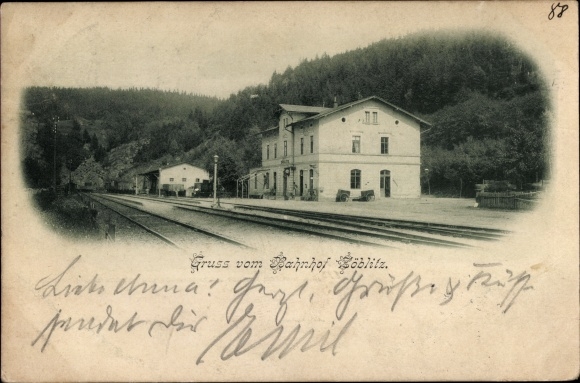 88
Gruss vom Bahnhof Zöblitz.
Liebe Anna! Herzl. Grüße & Küsse
sendet Dir Emil